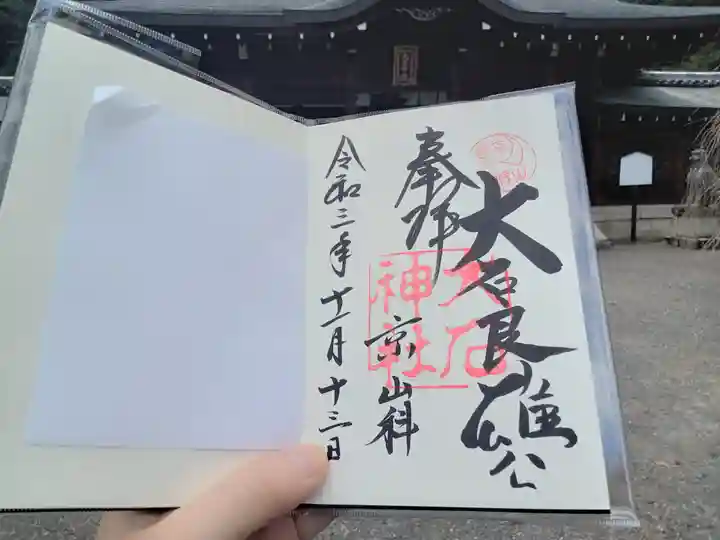 大石良雄公
奉拝
大石
神社
京山科
令和三年十一月十三日